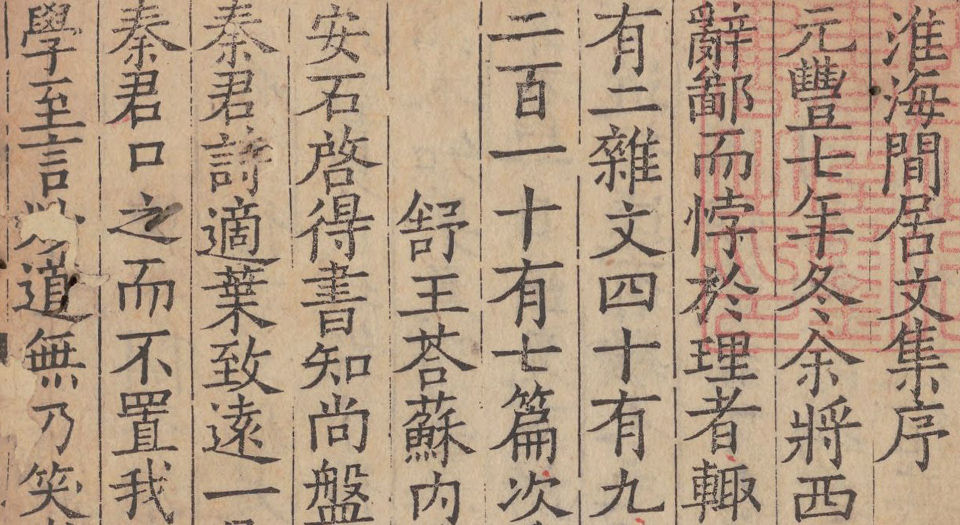 淮海閒居文集序
元豐七年冬余將西
辭鄙而悖於理者輙
有二雜文四十有九
二百一十有七篇次
舒王荅蘇内
安石啓得書知尚盤
秦君詩適葉致遠一
秦君口之而不置我
學至言妙道無乃笑